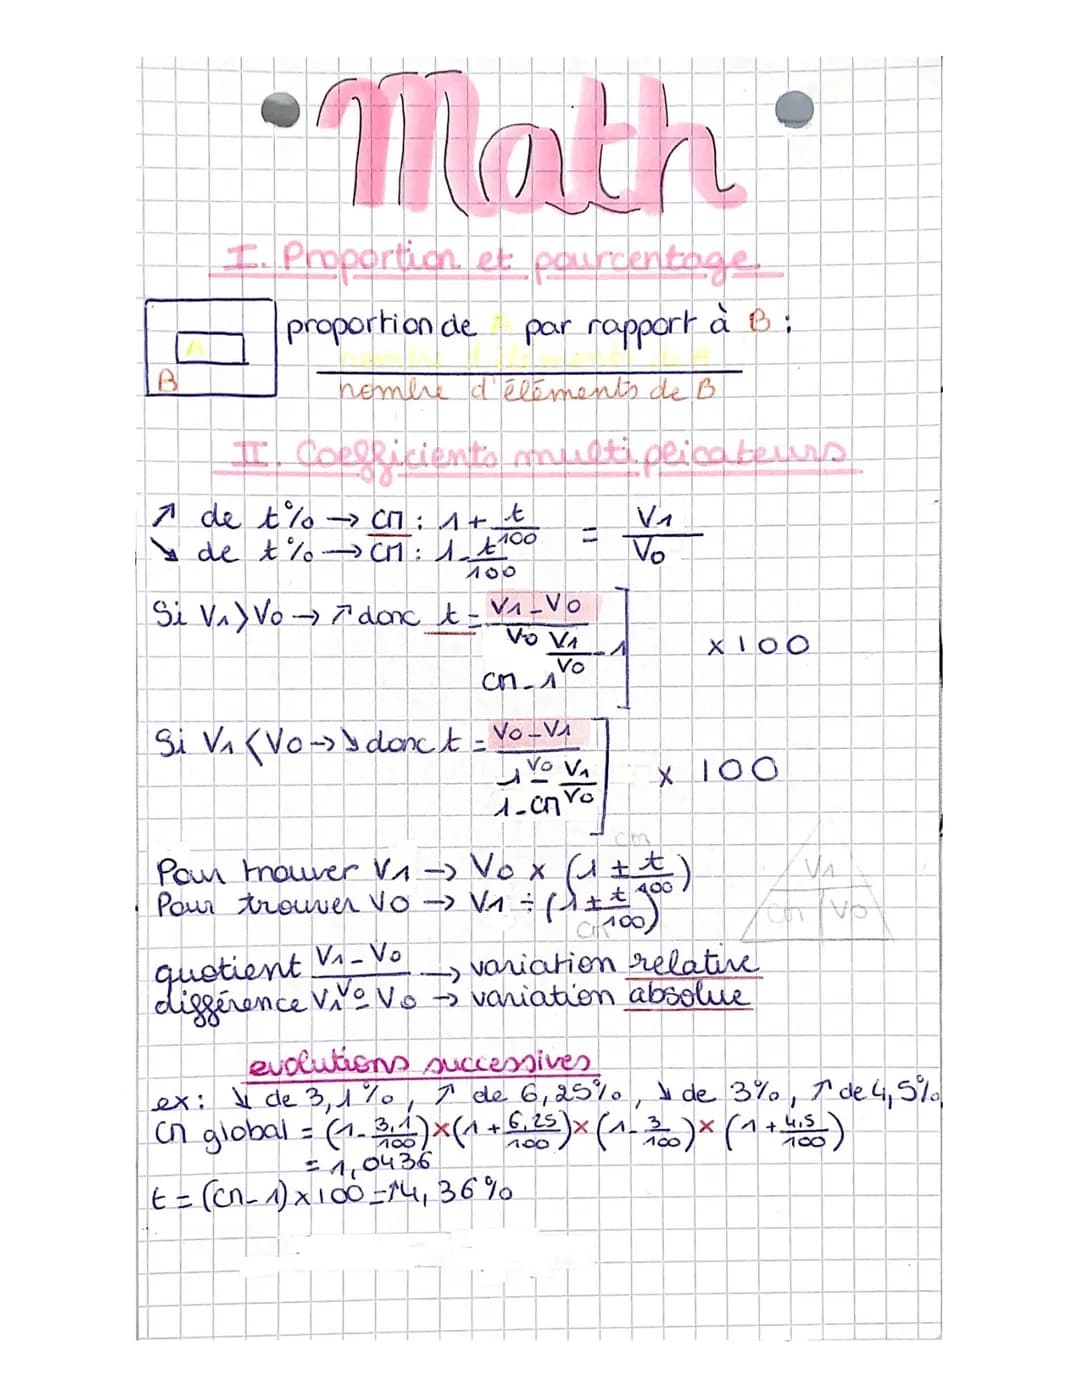 Math
I. Proportion et pourcentage
A
B
proportion de A par rapport à B :
nombre d'éléments de A
nombre d'éléments de B
II. Coefficients multiplicateurs
↗ de t% → CM : 1 + t/100 = V1/V0
↘ de t% → CM : 1 - t/100
Si V1 > V0 → ↗ donc t = V1 - V0 / V0
V1/V0 - 1
CM - 1
] × 100
Si V1 < V0 → ↘ donc t = V0 - V1 / V0
1 - V1/V0
1 - CM
] × 100
CM
Pour trouver V1 → V0 × (1 ± t/100)
Pour trouver V0 → V1 ÷ (1 ± t/100)
CM
V1
CM | V0
quotient V1 - V0 / V0 → variation relative
différence V1 - V0 → variation absolue
evolutions successives
ex : ↘ de 3,1%, ↗ de 6,25%, ↘ de 3%, ↗ de 4,5%
CM global = (1 - 3,1/100) × (1 + 6,25/100) × (1 - 3/100) × (1 + 4,5/100)
= 1,0436
t = (CM - 1) × 100 = ↑4,36%